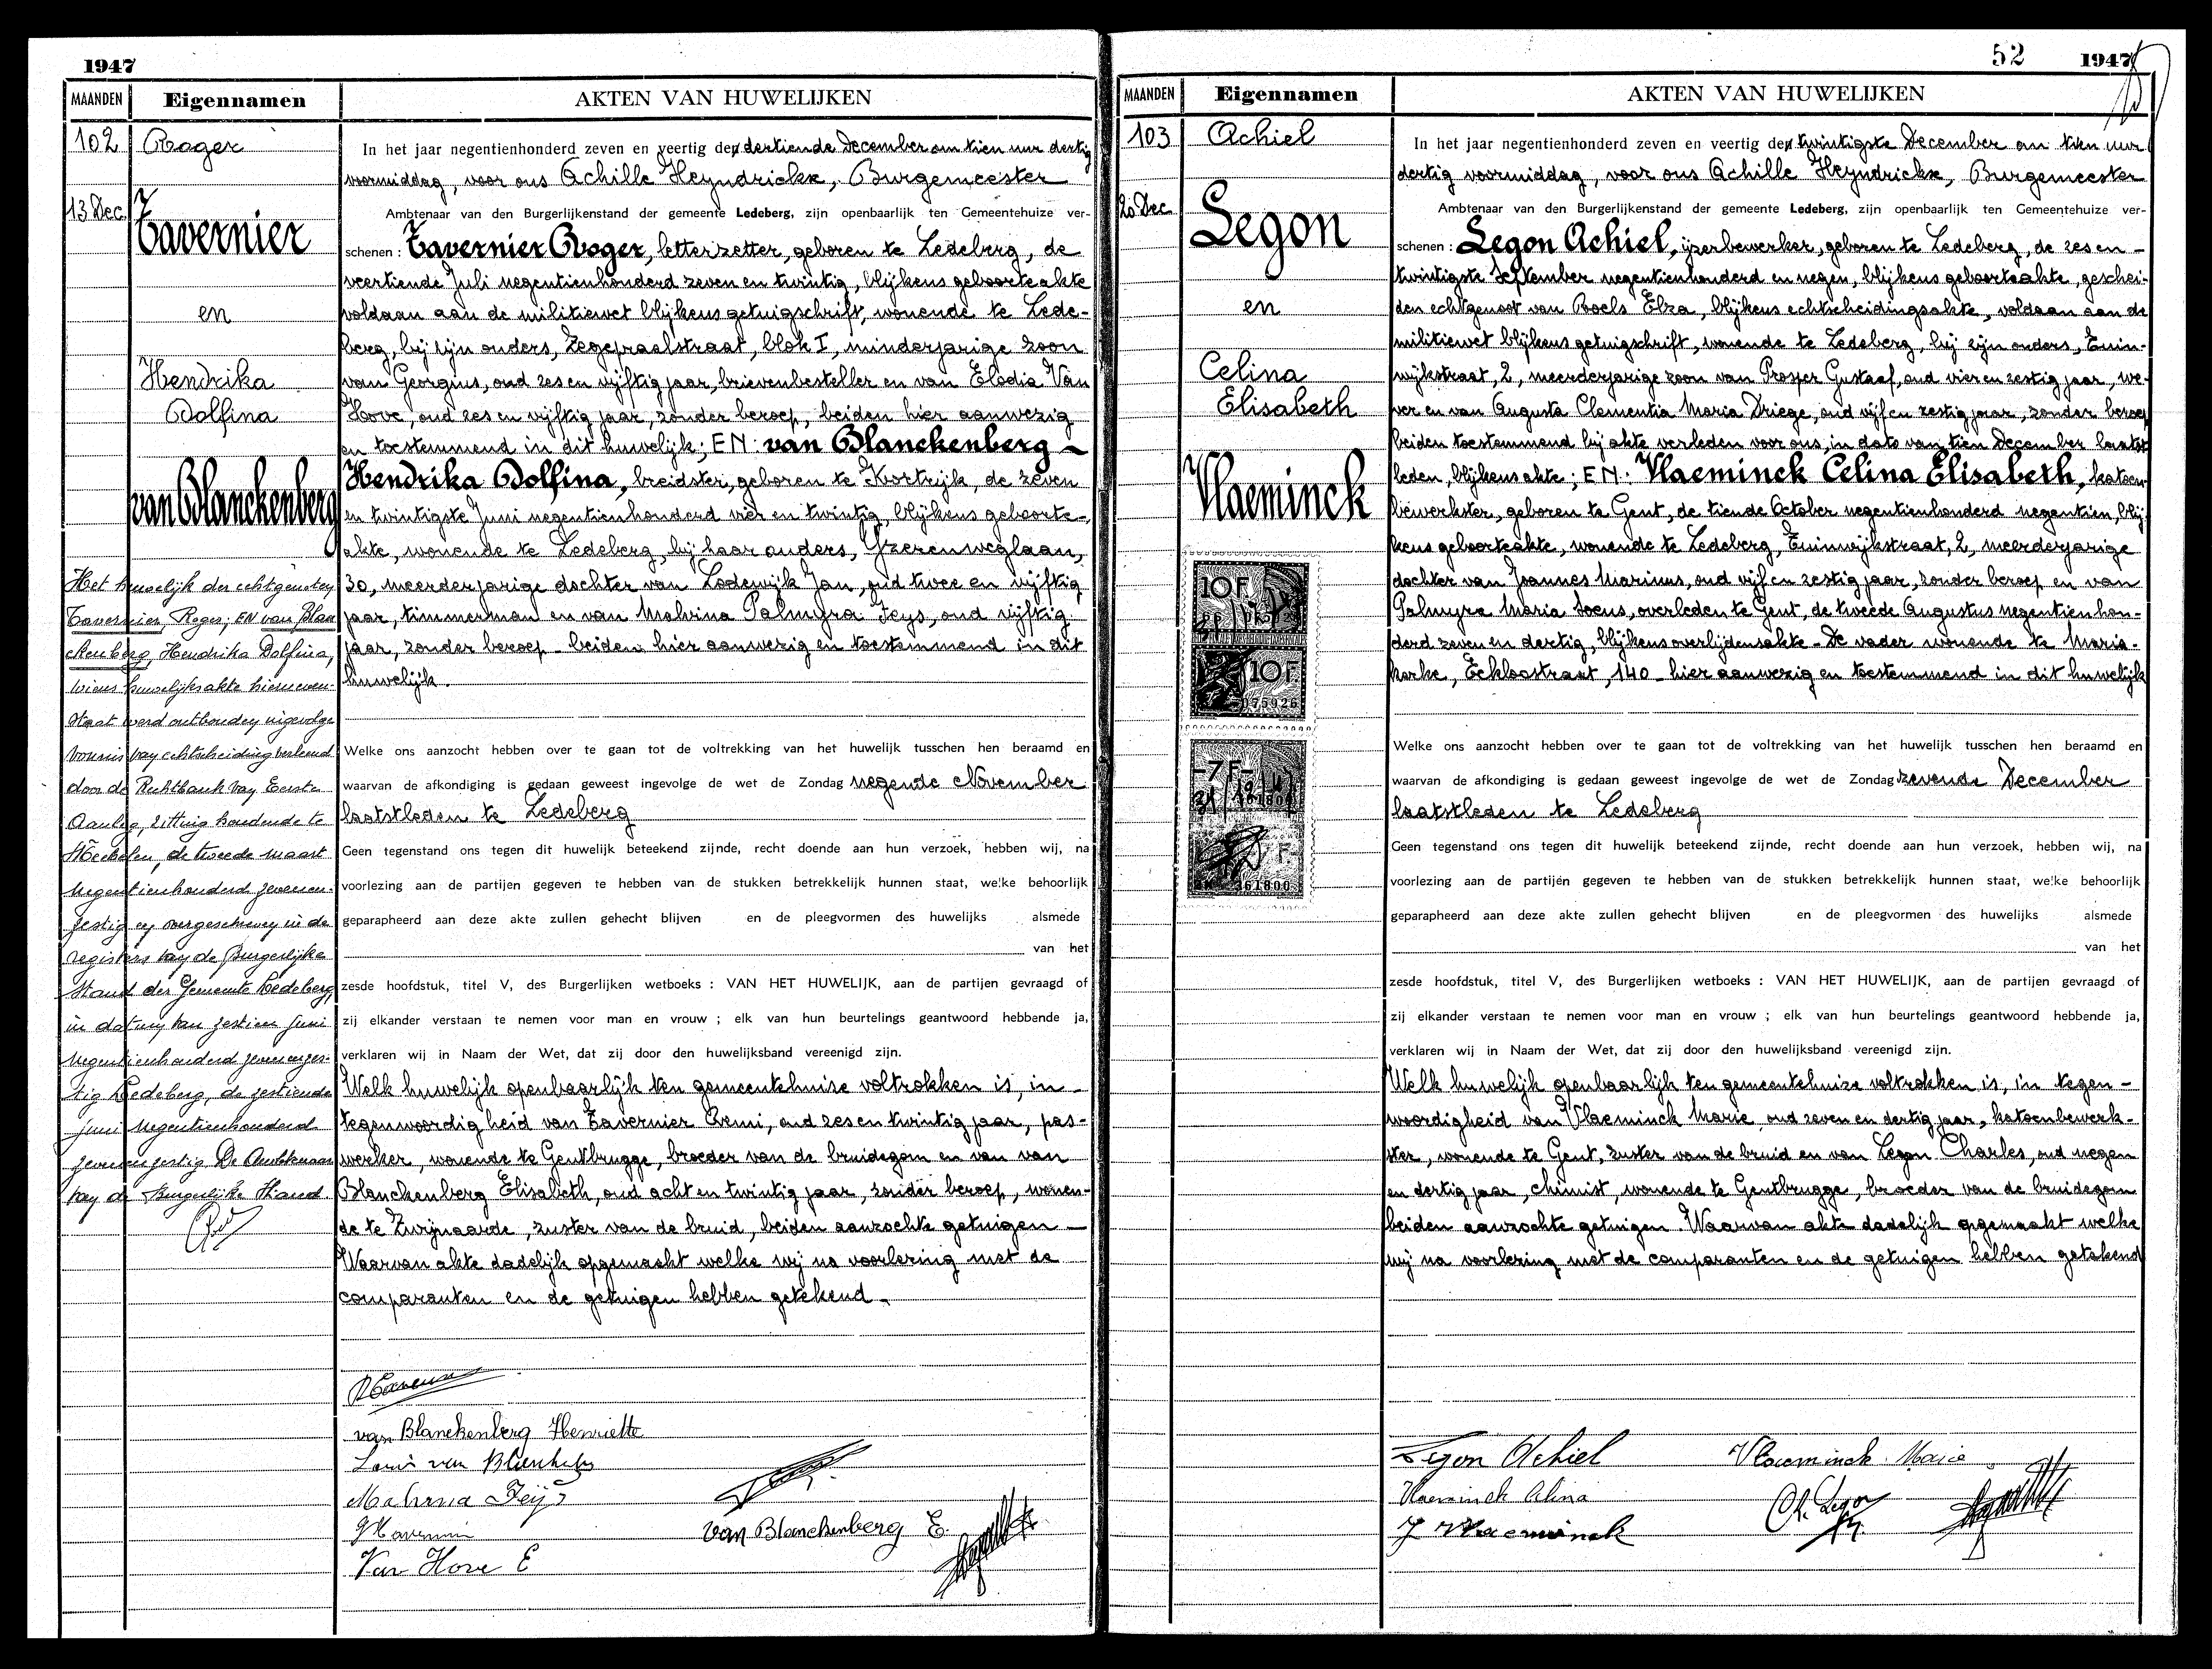 1947
MAANDEN Eigennamen AKTEN VAN HUWELIJKEN
102 Roger
13 Dec.
Tavernier
en
Hendrika
Dolfina
van Blanckenberg
In het jaar negentienhonderd zeven en veertig den dertiende December om tien uur dertig
voormiddag, voor ons Achille Heyndrickx, Burgemeester
Ambtenaar van den Burgerlijkenstand der gemeente Ledeberg, zijn openbaarlijk ten Gemeentehuize ver-
schenen : Tavernier Roger, letterzetter, geboren te Ledeberg, de
veertiende Juli negentienhonderd zeven en twintig, blijkens geboorteakte
voldaan aan de militiewet blijkens getuigschrift, wonende te Lede-
berg, bij zijn ouders, Zegepraalstraat, blok I, minderjarige zoon
van Georgius, oud zes en vijftig jaar, brievenbesteller en van Elodia Van
Hove, oud zes en vijftig jaar, zonder beroep, beiden hier aanwezig
en toestemmend in dit huwelijk; EN: van Blanckenberg
Hendrika Dolfina, breidster, geboren te Kortrijk, de zeven
en twintigste Juni negentienhonderd vier en twintig, blijkens geboorte-
akte, wonende te Ledeberg, bij haar ouders, Yzerenweglaan,
30, meerderjarige dochter van Lodewijk Jan, oud twee en vijftig
jaar, timmerman en van Malvina Palmyra Feys, oud vijftig
jaar, zonder beroep - beiden hier aanwezig en toestemmend in dit
huwelijk.
Welke ons aanzocht hebben over te gaan tot de voltrekking van het huwelijk tusschen hen beraamd en
waarvan de afkondiging is gedaan geweest ingevolge de wet de Zondag negende November
laatstleden te Ledeberg
Geen tegenstand ons tegen dit huwelijk beteekend zijnde, recht doende aan hun verzoek, hebben wij, na
voorlezing aan de partijen gegeven te hebben van de stukken betrekkelijk hunnen staat, welke behoorlijk
geparapheerd aan deze akte zullen gehecht blijven en de pleegvormen des huwelijks alsmede
van het
zesde hoofdstuk, titel V, des Burgerlijken wetboeks : VAN HET HUWELIJK, aan de partijen gevraagd of
zij elkander verstaan te nemen voor man en vrouw ; elk van hun beurtelings geantwoord hebbende ja,
verklaren wij in Naam der Wet, dat zij door den huwelijksband vereenigd zijn.
Welk huwelijk openbaarlijk ten gemeentehuize voltrokken is, in
tegenwoordigheid van Tavernier Remi, oud zes en twintig jaar, pas-
werker, wonende te Gentbrugge, broeder van de bruidegom en van van
Blanckenberg Elisabeth, oud acht en twintig jaar, zonder beroep, wonen-
de te Zwijnaarde, zuster van de bruid, beiden aanzochte getuigen
Waarvan akte dadelijk opgemaakt welke wij na voorlezing met de
comparanten en de getuigen hebben getekend.
Het huwelijk der echtgenoten
Tavernier, Roger; EN van Blan
ckenberg, Hendrika Dolfina,
wiens huwelijksakte hierneven-
staat werd ontbonden ingevolge
vonnis van echtscheiding verleend
door de Rechtbank van Eerste
Aanleg, zitting houdende te
Mechelen, de tweede maart
negentienhonderd zevenen-
zestig en overgeschreven in de
registers van de Burgerlijke
Stand der Gemeente Ledeberg
in datum van zestien juni
negentienhonderd zevenenzes-
tig Ledeberg, de zestiende
juni negentienhonderd
zevenenzestig De Ambtenaar
van de Burgerlijke Stand.
van Blanckenberg Henriette
Malvina Feys
van Blanckenberg E.
Van Hove E
52 1947
MAANDEN Eigennamen AKTEN VAN HUWELIJKEN
103 Achiel
20 Dec
Segon
en
Celina
Elisabeth
Vlaeminck
10F
10F.
075926
-7F-
361800
F.
361800
In het jaar negentienhonderd zeven en veertig den twintigste December om tien uur
dertig voormiddag, voor ons Achille Heyndrickx, Burgemeester
Ambtenaar van den Burgerlijkenstand der gemeente Ledeberg, zijn openbaarlijk ten Gemeentehuize ver-
schenen : Segon Achiel, ijzerbewerker, geboren te Ledeberg, de zes en
twintigste September negentienhonderd en negen, blijkens geboorteakte, geschei-
den echtgenoot van Roels Elza, blijkens echtscheidingsakte, voldaan aan de
militiewet blijkens getuigschrift, wonende te Ledeberg, bij zijn ouders, Tuin-
wijkstraat, 2, meerderjarige zoon van Prosper Gustaaf, oud vier en zestig jaar, we-
ver en van Augusta Clementia Maria Driege, oud vijf en zestig jaar, zonder beroep
beiden toestemmend bij akte verleden voor ons, in dato van tien December laatst
leden, blijkens akte; EN: Vlaeminck Celina Elisabeth, katoen-
bewerkster, geboren te Gent, de tiende October negentienhonderd negentien, blij-
kens geboorteakte, wonende te Ledeberg, Tuinwijkstraat, 2, meerderjarige
dochter van Joannes Marinus, oud vijf en zestig jaar, zonder beroep en van
Palmyra Maria Soens, overleden te Gent, de tweede Augustus negentienhon-
derd zeven en dertig, blijkens overlijdensakte - De vader wonende te Maria-
kerke, Eekloostraat, 140 - hier aanwezig en toestemmend in dit huwelijk
Welke ons aanzocht hebben over te gaan tot de voltrekking van het huwelijk tusschen hen beraamd en
waarvan de afkondiging is gedaan geweest ingevolge de wet de Zondag zevende December
laatstleden te Ledeberg
Geen tegenstand ons tegen dit huwelijk beteekend zijnde, recht doende aan hun verzoek, hebben wij, na
voorlezing aan de partijen gegeven te hebben van de stukken betrekkelijk hunnen staat, welke behoorlijk
geparapheerd aan deze akte zullen gehecht blijven en de pleegvormen des huwelijks alsmede
van het
zesde hoofdstuk, titel V, des Burgerlijken wetboeks : VAN HET HUWELIJK, aan de partijen gevraagd of
zij elkander verstaan te nemen voor man en vrouw ; elk van hun beurtelings geantwoord hebbende ja,
verklaren wij in Naam der Wet, dat zij door den huwelijksband vereenigd zijn.
Welk huwelijk openbaarlijk ten gemeentehuize voltrokken is, in tegen-
woordigheid van Vlaeminck Marie, oud zeven en dertig jaar, katoenbewerk-
ster, wonende te Gent, zuster van de bruid en van Segon Charles, oud negen
en dertig jaar, chimist, wonende te Gentbrugge, broeder van de bruidegom
beiden aanzochte getuigen. Waarvan akte dadelijk opgemaakt welke
wij na voorlezing met de comparanten en de getuigen hebben getekend
Segon Achiel Vlaeminck Marie
Vlaeminck Celina
Ch. Segon
J Vlaeminck